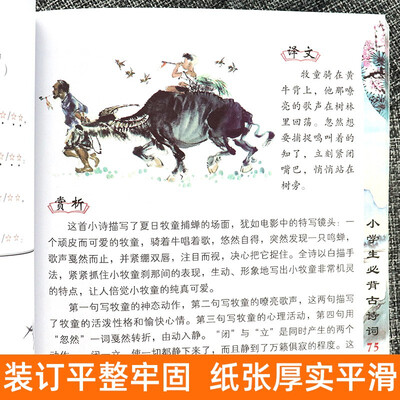 译文
牧童骑在黄
牛背上，他那嘹
亮的歌声在树林
里回荡。忽然想
要捕捉鸣叫着的
知了，立刻紧闭
嘴巴，悄悄站在
树旁。
赏析
这首小诗描写了夏日牧童捕蝉的场面，犹如电影中的特写镜头：一
个顽皮而可爱的牧童，骑着牛唱着歌，悠然自得，突然发现一只鸣蝉，
歌声戛然而止，并紧绷双唇，注目而视，决心把它捉住。全诗以白描手
法，紧紧抓住小牧童刹那间的表现，生动、形象地写出小牧童非常机灵
的特点，让人倍觉小牧童的纯真可爱。
第一句写牧童的神态动作，第二句写牧童的嘹亮歌声，这两句描写
了牧童的活泼性格和愉快心情。第三句写牧童的心理活动，第四句用
“忽然”一词戛然转折，由动入静。“闭”与“立”是同时产生的两个
小学生必背古诗词
75
装订平整牢固 纸张厚实平滑